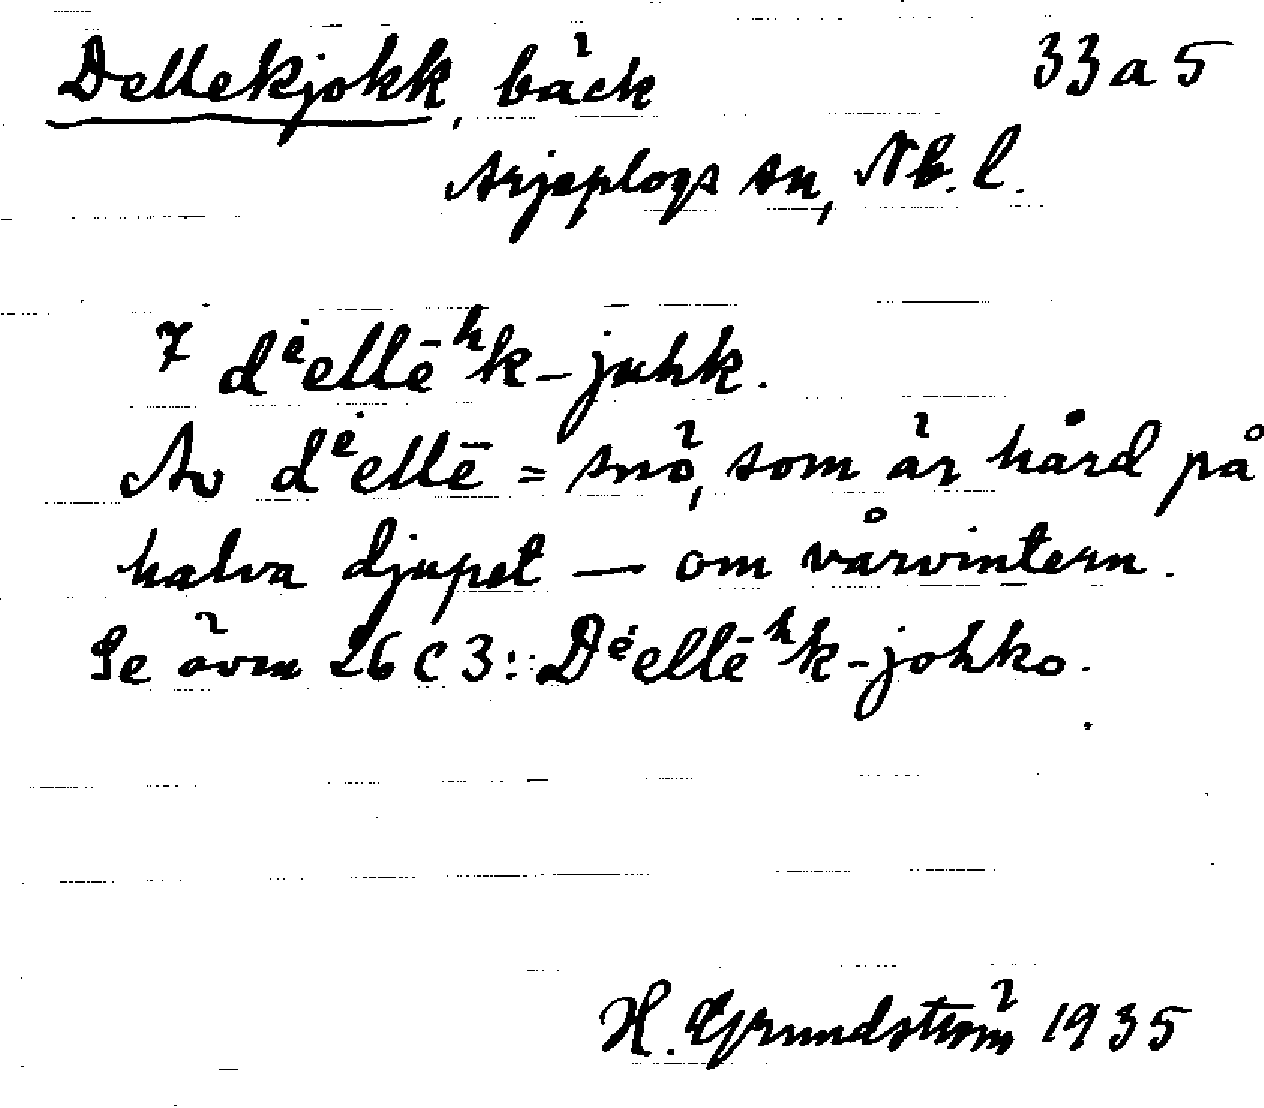 Dellekjokk, bäck 33 a 5
Arjeplogs sn, Nb. l.
7 dᵉ̇ellēʰk-juhk.
Av dᵉ̇ellē = snö, som är hård på
halva djupet — om vårvintern.
Se även 26 C 3: Dᵉ̇ellēʰk-johko.
H. Grundström 1935